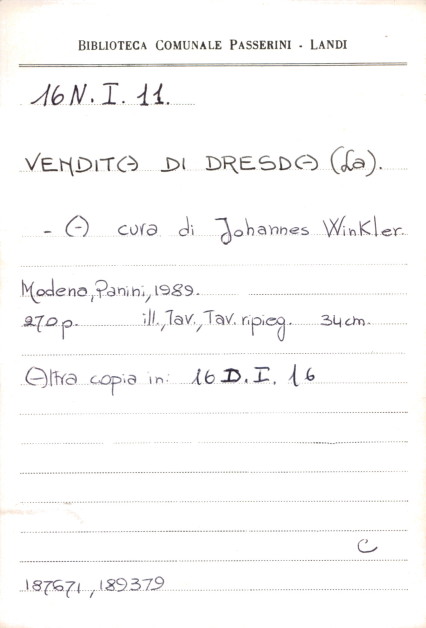 BIBLIOTECA COMUNALE PASSERINI - LANDI
16 N. I. 11.
VENDITA DI DRESDA (La).
- A cura di Johannes Winkler.
Modena, Panini, 1989.
270 p. ill., Tav., Tav. ripieg. 34 cm.
Altra copia in: 16 D. I. 16
C
187671, 189379